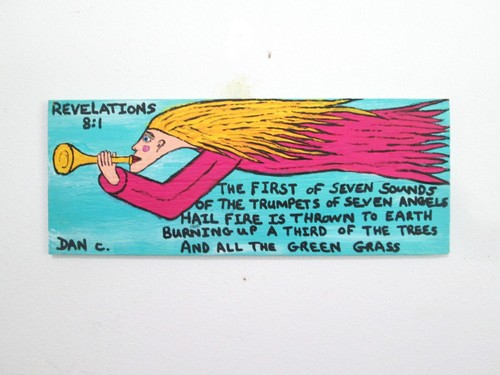 REVELATIONS
8:1
THE FIRST OF SEVEN SOUNDS
OF THE TRUMPETS OF SEVEN ANGELS
HAIL FIRE IS THROWN TO EARTH
BURNING UP A THIRD OF THE TREES
AND ALL THE GREEN GRASS
DAN C.